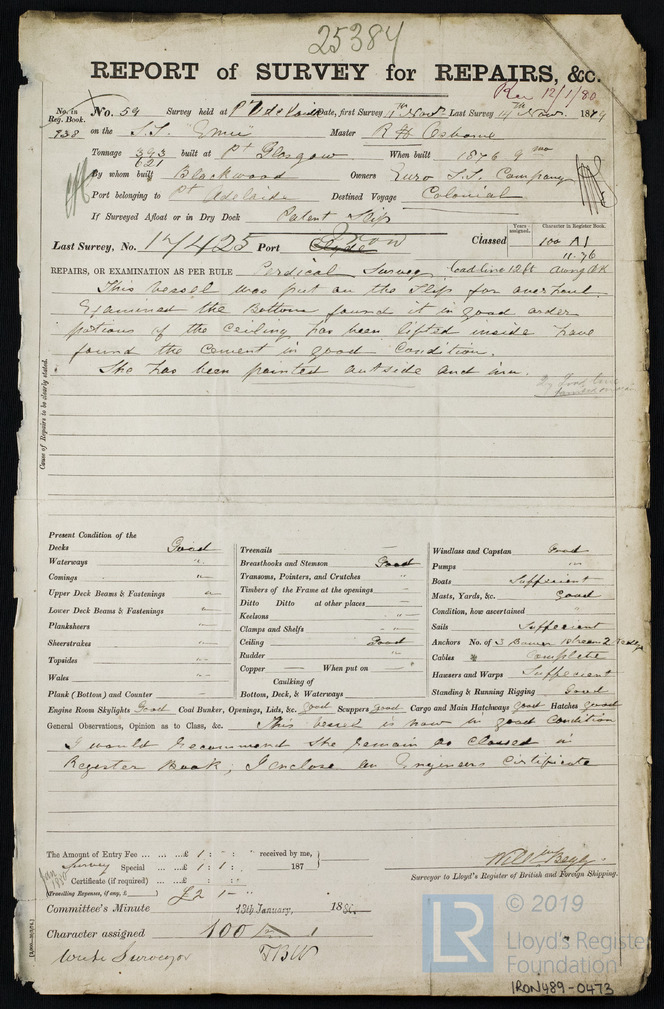 25384
REPORT of SURVEY for REPAIRS, &c.
Rec 12/1/80
No. in Reg. Book. No. 59 Survey held at Pt Adelaide Date, first Survey 1th Nov. Last Survey 14th Nov. 1879
938 on the S.S. "Emu" Master R H Osborne
Tonnage 393 built at Pt Glasgow When built 1876 9 mo
621
By whom built Blackwood Owners Euro S.S. Company
Port belonging to Pt Adelaide Destined Voyage Colonial
If Surveyed Afloat or in Dry Dock Patent Slip
Last Survey, No. 17425 Port Clyde Classed Years assigned. Character in Register Book. 100 A1
11.76
REPAIRS, OR EXAMINATION AS PER RULE Perdical Survey Load line 12ft
This vessel was put on the Slip for overhaul.
Examined the Bottom found it in good order
potions of the ceiling has been lifted inside have
found the cement in good condition.
She has been painted outside and inn.
Cause of Repairs to be clearly stated.
Present Condition of the
Decks Good
Waterways "
Comings "
Upper Deck Beams & Fastenings "
Lower Deck Beams & Fastenings "
Planksheers "
Sheerstrakes "
Topsides "
Wales "
Plank (Bottom) and Counter "
Treenails
Breasthooks and Stemson Good
Transoms, Pointers, and Crutches "
Timbers of the Frame at the openings "
Ditto Ditto at other places
Keelsons "
Clamps and Shelfs "
Ceiling Good
Rudder "
Copper When put on
Caulking of
Bottom, Deck, & Waterways
Windlass and Capstan Good
Pumps "
Boats Suffecient
Masts, Yards, &c. Good
Condition, how ascertained
Sails Suffecient
Anchors No. of 3 Bower 1 Stream 2 Kedge
Cables Complete
Hawsers and Warps Suffecient
Standing & Running Rigging Good
Engine Room Skylights Good Coal Bunker, Openings, Lids, &c. Good Scuppers Good Cargo and Main Hatchways Good Hatches Good
General Observations, Opinion as to Class, &c. This vessel is now in good Condition
I would recommend She remain as classed in
Register Book; I enclose an Engineers Certificate
The Amount of Entry Fee ... ... ...£ 1 : " : received by me,
Survey Special ... ...£ 1 : 1 : 187
Certificate (if required) ... ...£ : :
(Travelling Expenses, if any, £ ) £2 1 -
Surveyor to Lloyd's Register of British and Foreign Shipping.
Committee's Minute 13th January, 1880.
Character assigned 100 A 1
Write Surveyor TBW
© 2019
LR
Lloyd's Register
Foundation
IRON489-0473